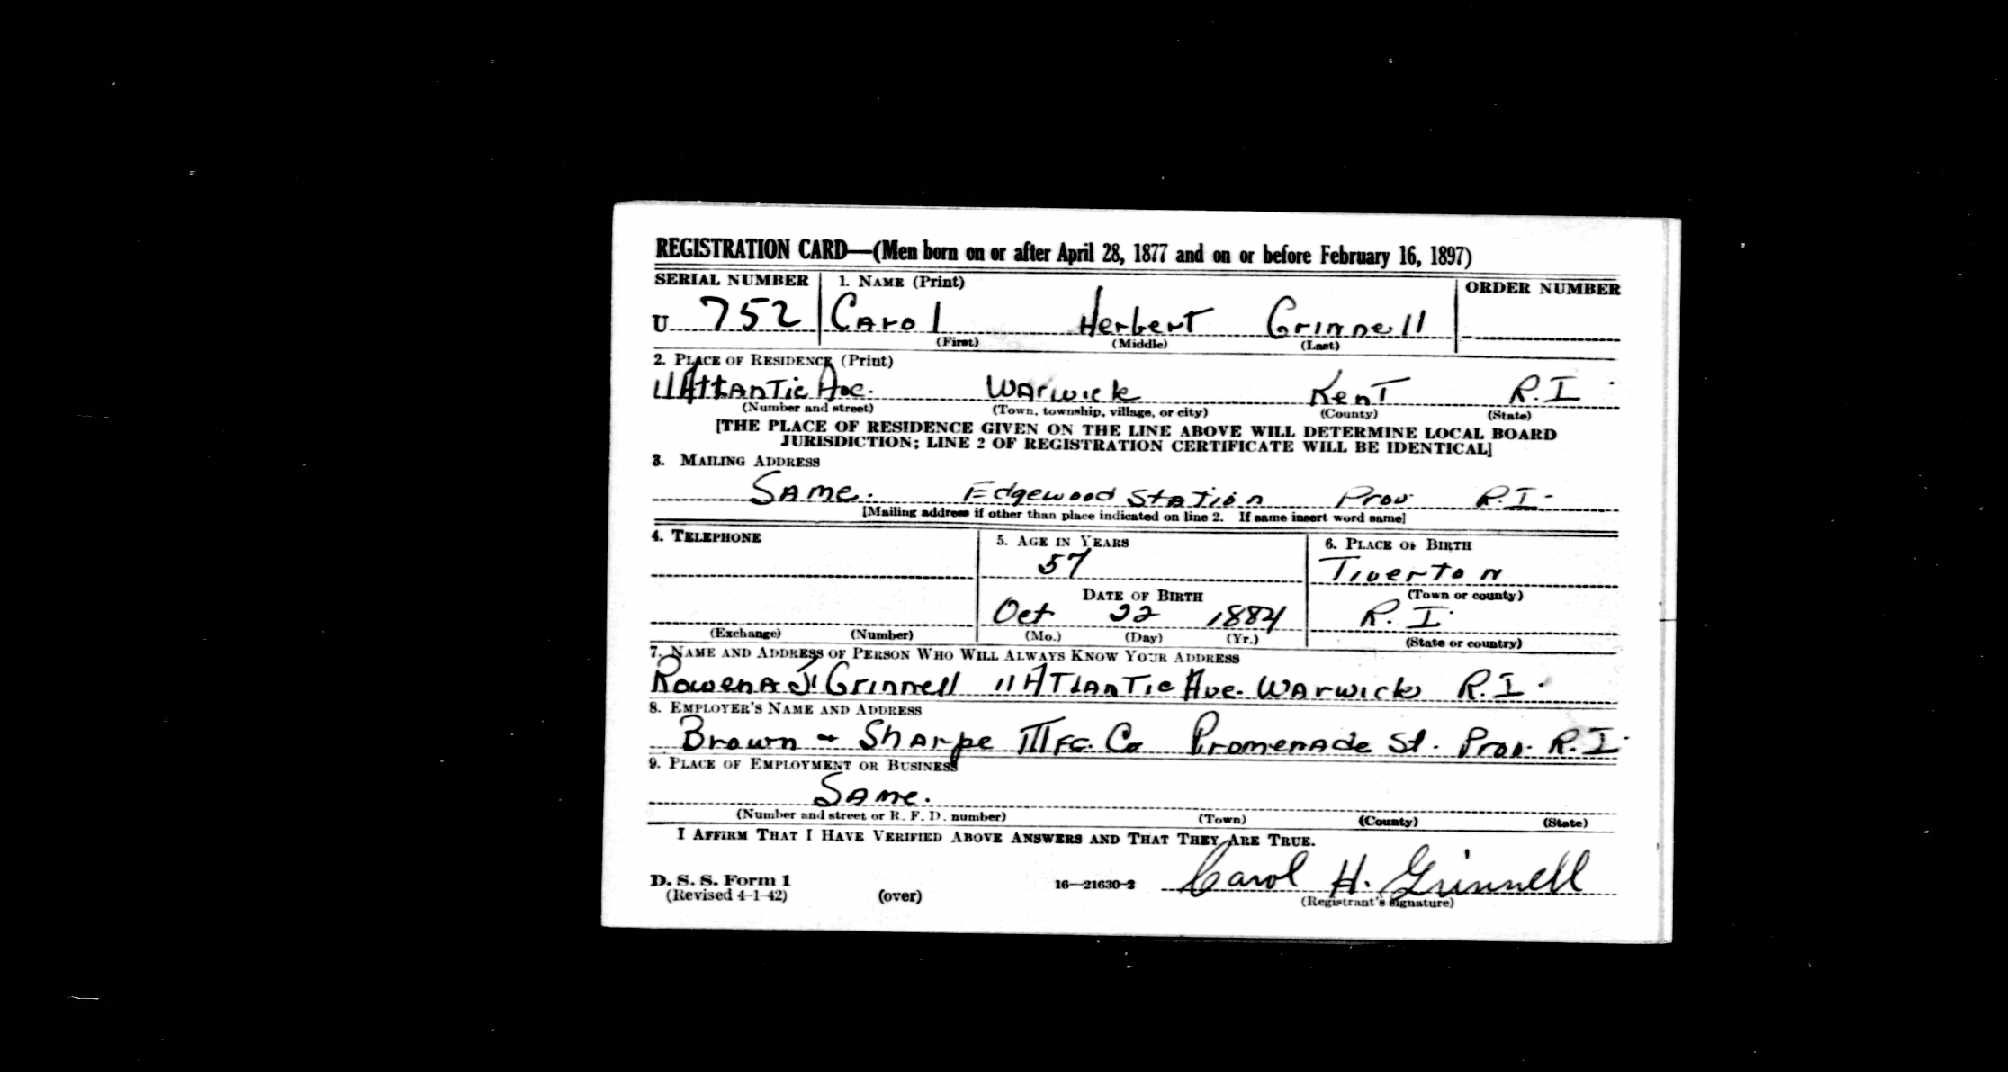 REGISTRATION CARD—(Men born on or after April 28, 1877 and on or before February 16, 1897)
SERIAL NUMBER 1. NAME (Print) ORDER NUMBER
U 752 Carol Herbert Grinnell
(First) (Middle) (Last)
2. PLACE OF RESIDENCE (Print)
11 Atlantic Ave. Warwick Kent R.I.
(Number and street) (Town, township, village, or city) (County) (State)
[THE PLACE OF RESIDENCE GIVEN ON THE LINE ABOVE WILL DETERMINE LOCAL BOARD
JURISDICTION; LINE 2 OF REGISTRATION CERTIFICATE WILL BE IDENTICAL]
3. MAILING ADDRESS
Same. Edgewood Station Prov R.I.
[Mailing address if other than place indicated on line 2. If same insert word same]
4. TELEPHONE 5. AGE IN YEARS 6. PLACE OF BIRTH
57 Tiverton
DATE OF BIRTH (Town or county)
Oct 22 1884 R.I.
(Exchange) (Number) (Mo.) (Day) (Yr.) (State or country)
7. NAME AND ADDRESS OF PERSON WHO WILL ALWAYS KNOW YOUR ADDRESS
Rowena J. Grinnell 11 Atlantic Ave. Warwick R.I.
8. EMPLOYER'S NAME AND ADDRESS
Brown & Sharpe Mfg. Co Promenade St. Prov. R.I.
9. PLACE OF EMPLOYMENT OR BUSINESS
Same.
(Number and street or R. F. D. number) (Town) (County) (State)
I AFFIRM THAT I HAVE VERIFIED ABOVE ANSWERS AND THAT THEY ARE TRUE.
D. S. S. Form 1
(Revised 4-1-42) (over) 16—21630-2 Carol H. Grinnell
(Registrant's signature)